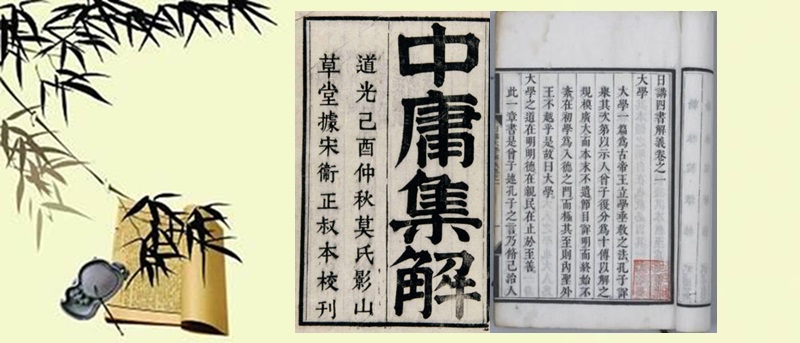 中庸集解
道光己酉仲秋莫氏影山
草堂據宋衞正叔本校刊
日講四書解義卷之一
大學
大學一篇爲古帝王立學垂教之法孔子詳
舉其次第以示人曾子復分爲十傳以解之
規模廣大而本末不遺節目詳明而終始不
紊在初學爲入德之門而極其至則內聖外
王不越乎是故曰大學
大學之道在明明德在親民在止於至善
此一章書是曾子述孔子之言乃脩己治人